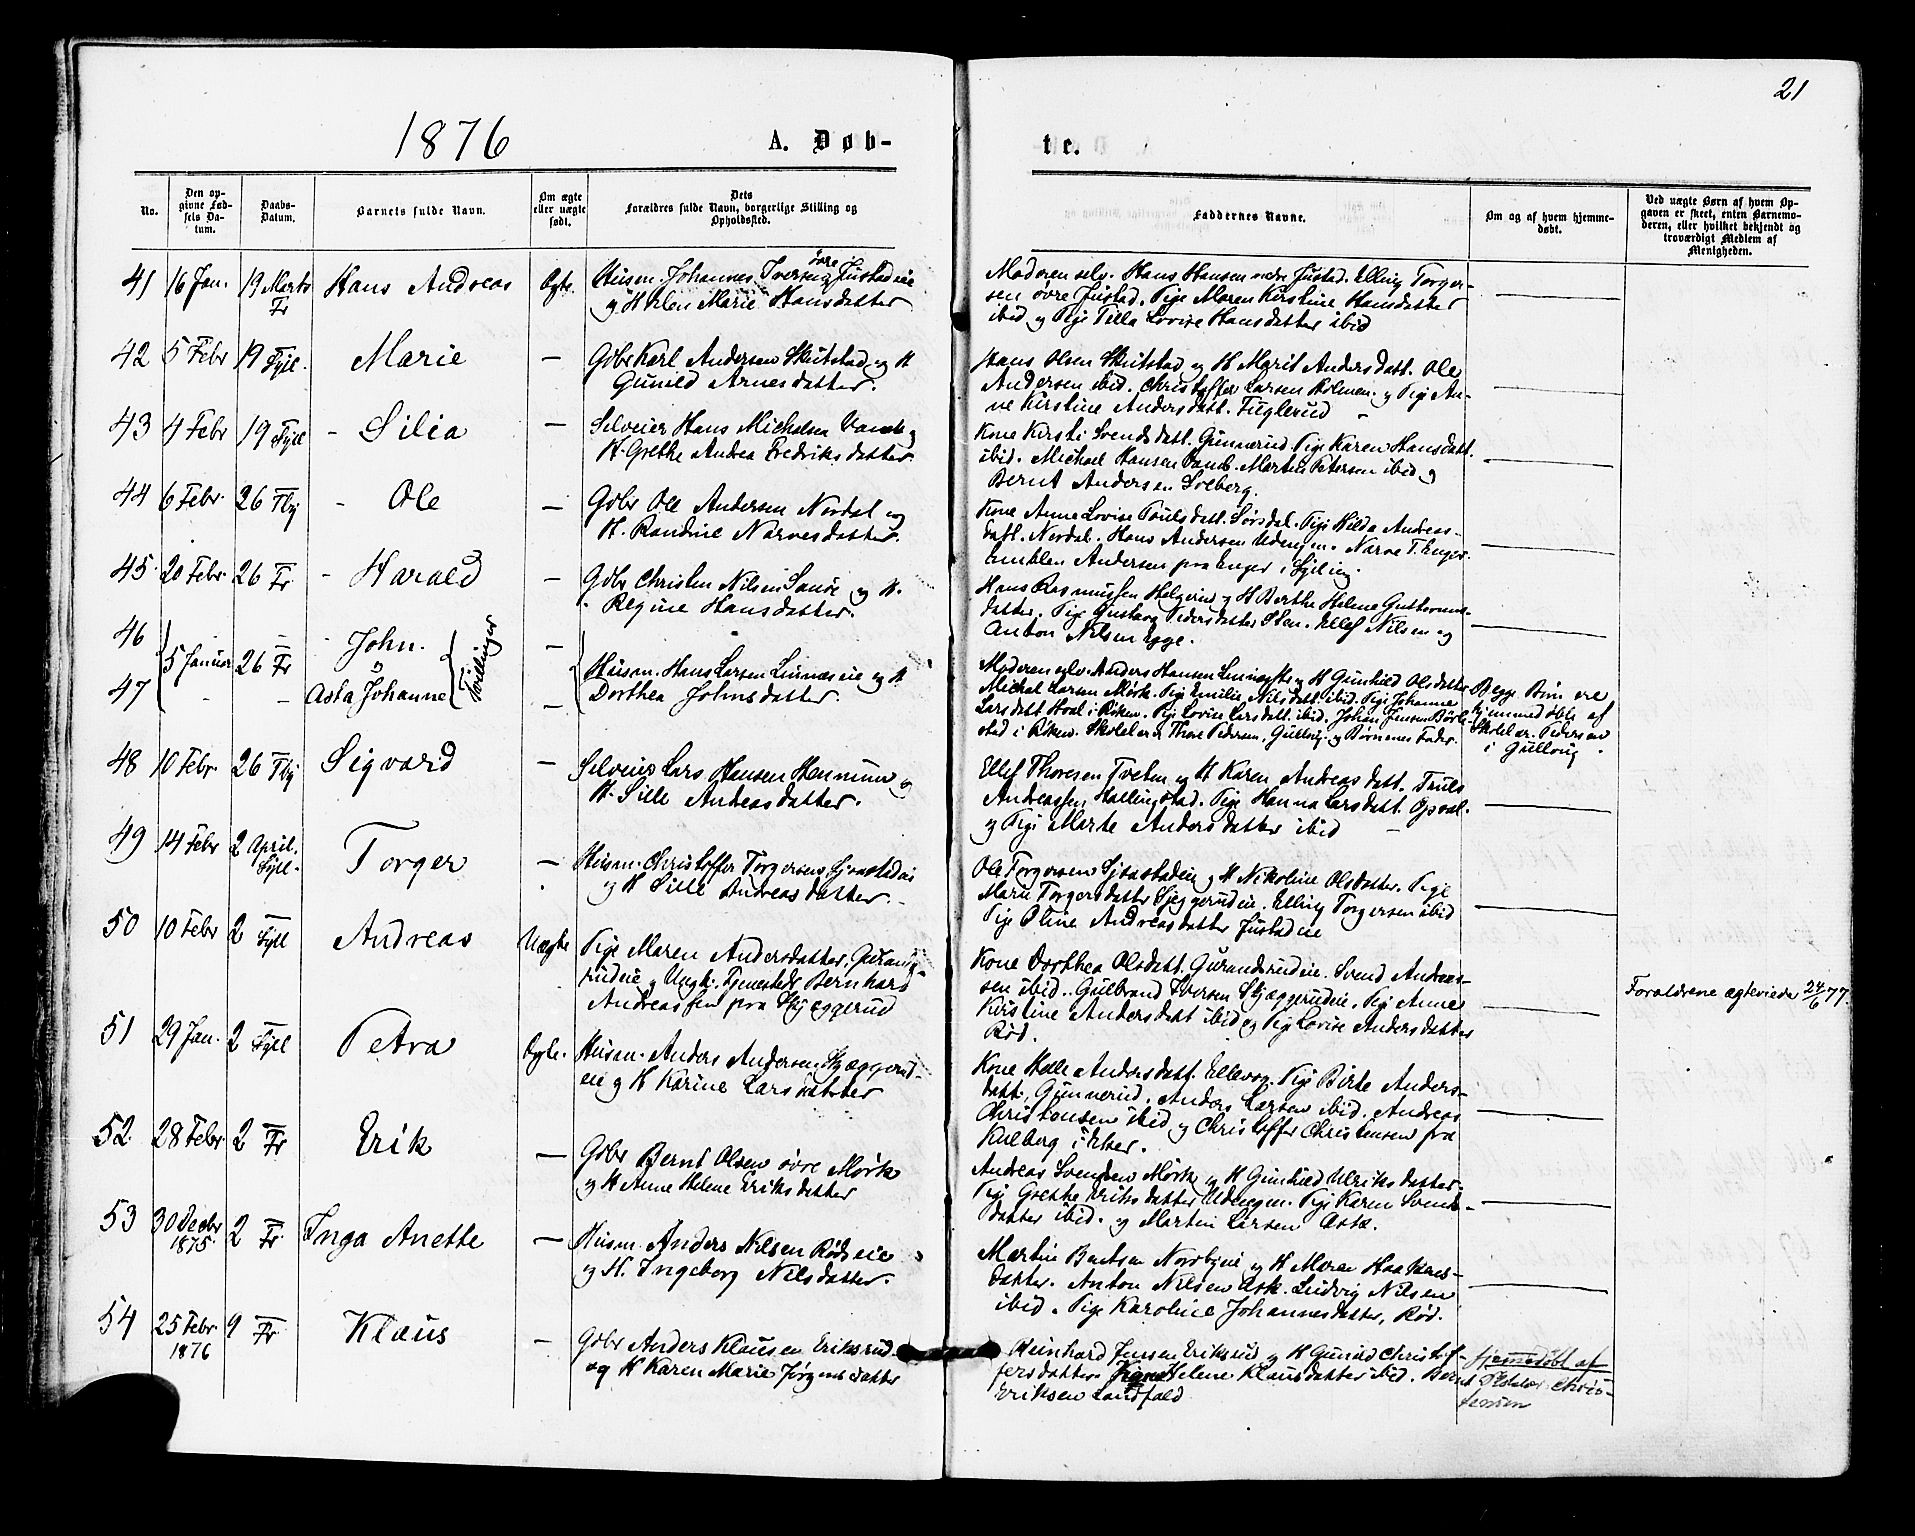 21
1876
A. Døb-
te.
No.
Den op-
givne Fød-
sels Da-
tum.
Daabs-
Datum.
Barnets fulde Navn.
Om ægte
eller uægte
født.
Dets
Forældres fulde Navn, borgerlige Stilling og
Opholdssted.
Faddernes Navne.
Om og af hvem hjemme-
døbt.
Ved uægte Børn af hvem Op-
gaven er skeet, enten Barnemo-
deren, eller hvilket bekjendt og
troværdigt Medlem af
Menigheden.
41 16 Jan. 19 Marts Fr Hans Andreas Ægte.
Husm. Johannes Iversen øvre Justadeie
og H. Helen Marie Hansdatter
Moderen selv. Hans Hansen nedre Justad. Elling Torger-
sen øvre Justad. Pige Maren Kirstine Hansdatter
ibid og Pige Tilla Lovise Hansdatter ibid
42 5 Febr 19 Syll. Marie —
Gdbr Karl Andersen Skutstad og H
Gunild Arnesdatter.
Hans Olsen Skutstad og H Marit Andersdatt. Ole
Andersen ibid. Christoffer Larsen Holmen. og Pige An-
ne Kirstine Andersdatt. Fuglerud
43 4 Febr 19 Syll - Silia —
Selveier Hans Michelsen og
H. Grethe Andrea Fredriksdatter
Kone Kirsti Svendsdatt. Gunnerud. Pige Karen Hansdatt.
ibid. Michael Hansen. Martin Petersen ibid og
Bernt Andersen Solberg.
44 6 Febr. 26 Tbj - Ole —
Gdbr Ole Andersen Nordal og
H. Randine Narvesdatter.
Kone Anne Lovise Poulsdatt. Sørsdal. Pige Hilda Andreas-
datt. Nordal. Hans Andersen Udengen. Narve T. Enger.
Andersen fra Enger i Sylling.
45. 20 Febr. 26 Fr - Harald —
Gdbr Christen Nilsen og H.
Regine Hansdatter.
Hans Rasmussen Helgerud og H Berthe Helene Guttorms-
datter. Pige Gustava Pedersdatter Sten. Ellef Nilsen og
Anton Nilsen Egge.
46 5 Januar 26 Fr John. —
47 Asta Johanne —
Tvillinger
Husm. Hans Larsen Linneseie og H
Dorthea Johnsdatter.
Moderen selv. Anders Hansen og H Gunhild Olsdatter
Michal Larsen Mørk. Pige Emilie Nilsdatt. ibid. Pige Johanne
Larsdatt Hval i Røken. Pige Lovise Larsdatt. ibid. Johan Jensen
stad i Røken. Skolelærer Thore Pedersen, Gullaug og Børnenes Fader.
Begge Børn ere
hjemmedøbte af
Skolelær. Pedersen
i Gullaug.
48 10 Febr. 26 Tbj Sigvard —
Selveier Lars Hansen Hennum og
H. Sille Andreasdatter.
Ellef Thoresen Tveten og H Karen Andreasdatt. Truls
Andreassen Hallingstad. Pige Hanna Larsdatt. Opsal.
og Pige Marte Andersdatter ibid
49 14 Febr 2 April. Syll. Torger —
Husm. Christoffer Torgersen Sjøstadeie
og H Sille Andreasdatter.
Ole Torgersen Sjøstadeie og H Nikoline Olsdatter. Pige
Maren Torgersdatter Skjeggerudeie. Elling Torgersen ibid
Pige Oline Andreasdatter Justadeie
50 10 Febr 2 Syll Andreas Uægte
Pige Maren Andersdatter, Gurands-
rudeie og Ungk. Tjenestedr Bernhard
Andreassen fra Skjæggerud
Kone Dorthea Olsdatt. Gurandsrudeie. Svend Andreas-
sen ibid. Gulbrand Iversen Skjæggerudeie. Pige Anne
Kirstine Andersdatt ibid og Pige Lovise Andersdatter
Rød.
Forældrene ægteviede 24/6 77.
51 29 Jan. 2 Syll Petra Ægte.
Husm. Anders Andersen Skjæggerud-
eie og H Karine Larsdatter
Kone Helle Andersdatt. Pige Birte Anders-
datt. Gunnerud. Anders Larsen ibid. Andreas
Christensen ibid og Christoffer Christensen fra
Kulberg i Eker.
52. 28 Febr. 2 Fr Erik —
Gdbr Bernt Olsen øvre Mørk
og H Anne Helene Eriksdatter
Andreas Svendsen Mørk og H Gunhild Ulriksdatter.
Pige Grethe Eriksdatter Udengen. Pige Karen Svends-
datter ibid. og Martin Larsen Ask.
53 30 Decbr 1875. 2 Fr. Inga Anette —
Husm. Anders Nilsen Rødseie
og H. Ingeborg Nilsdatter.
Martin Berntsen Nordbyeie og H Maren Haakens-
datter. Anton Nilsen Ask. Ludvig Nilsen
ibid. Pige Karoline Johannesdatter, Rød.
54 25 Febr. 1876 9 Fr Klaus —
Gdbr Anders Klausen Eriksrud
og H Karen Marie Jørgensdatter
Reinhard Jensen Eriksrud og H Gunild Christof-
fersdatter. Helene Klausdatter ibid. Bernt
Eriksen Landfald
Hjemmedøbt af
Skolelær. Chris-
tensen